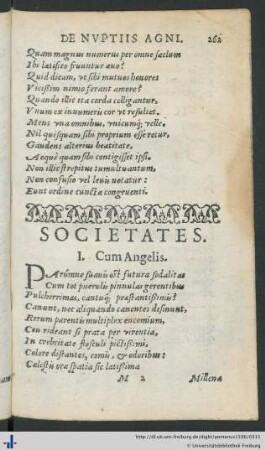 DE NVPTIIS AGNI. 262
Quam magnus numerus per omne sæclum
Ibi latifico fruuntur auo?
Quid dicam, vt sibi mutuos honores
Vicissim nimio ferant amore?
Quando illic ita corda colligantur,
Vnum ex innumeris cor vt resultet.
Mens vna omnibus, vnicumq; velle,
Nil quisquam sibi proprium esse retur,
Gaudens alterius beatitate,
Aequè quam sibi contigisset ipsi.
Non illic strepitus tumultuantum,
Non confusio vel leuis notatur:
Eunt ordine cuncta congruenti.
SOCIETATES.
I. Cum Angelis.
PArúmne suauis est futura sodalitas
Cum tot puerulis pinnulas gerentibus
Pulcherrimas, cantuq; præstantissimis?
Canunt, nec aliquando canentes desinunt,
Rerum parentis multiplex encomium,
Ceu rident si prata per virentia,
In crebritate flosculi pictissimi,
Colore distantes, comis, & odoribus:
Cælestis ora spatia sic latissima
M 2 Millena
http://dl.ub.uni-freiburg.de/diglit/pontanus1596/0331
© Universitätsbibliothek Freiburg